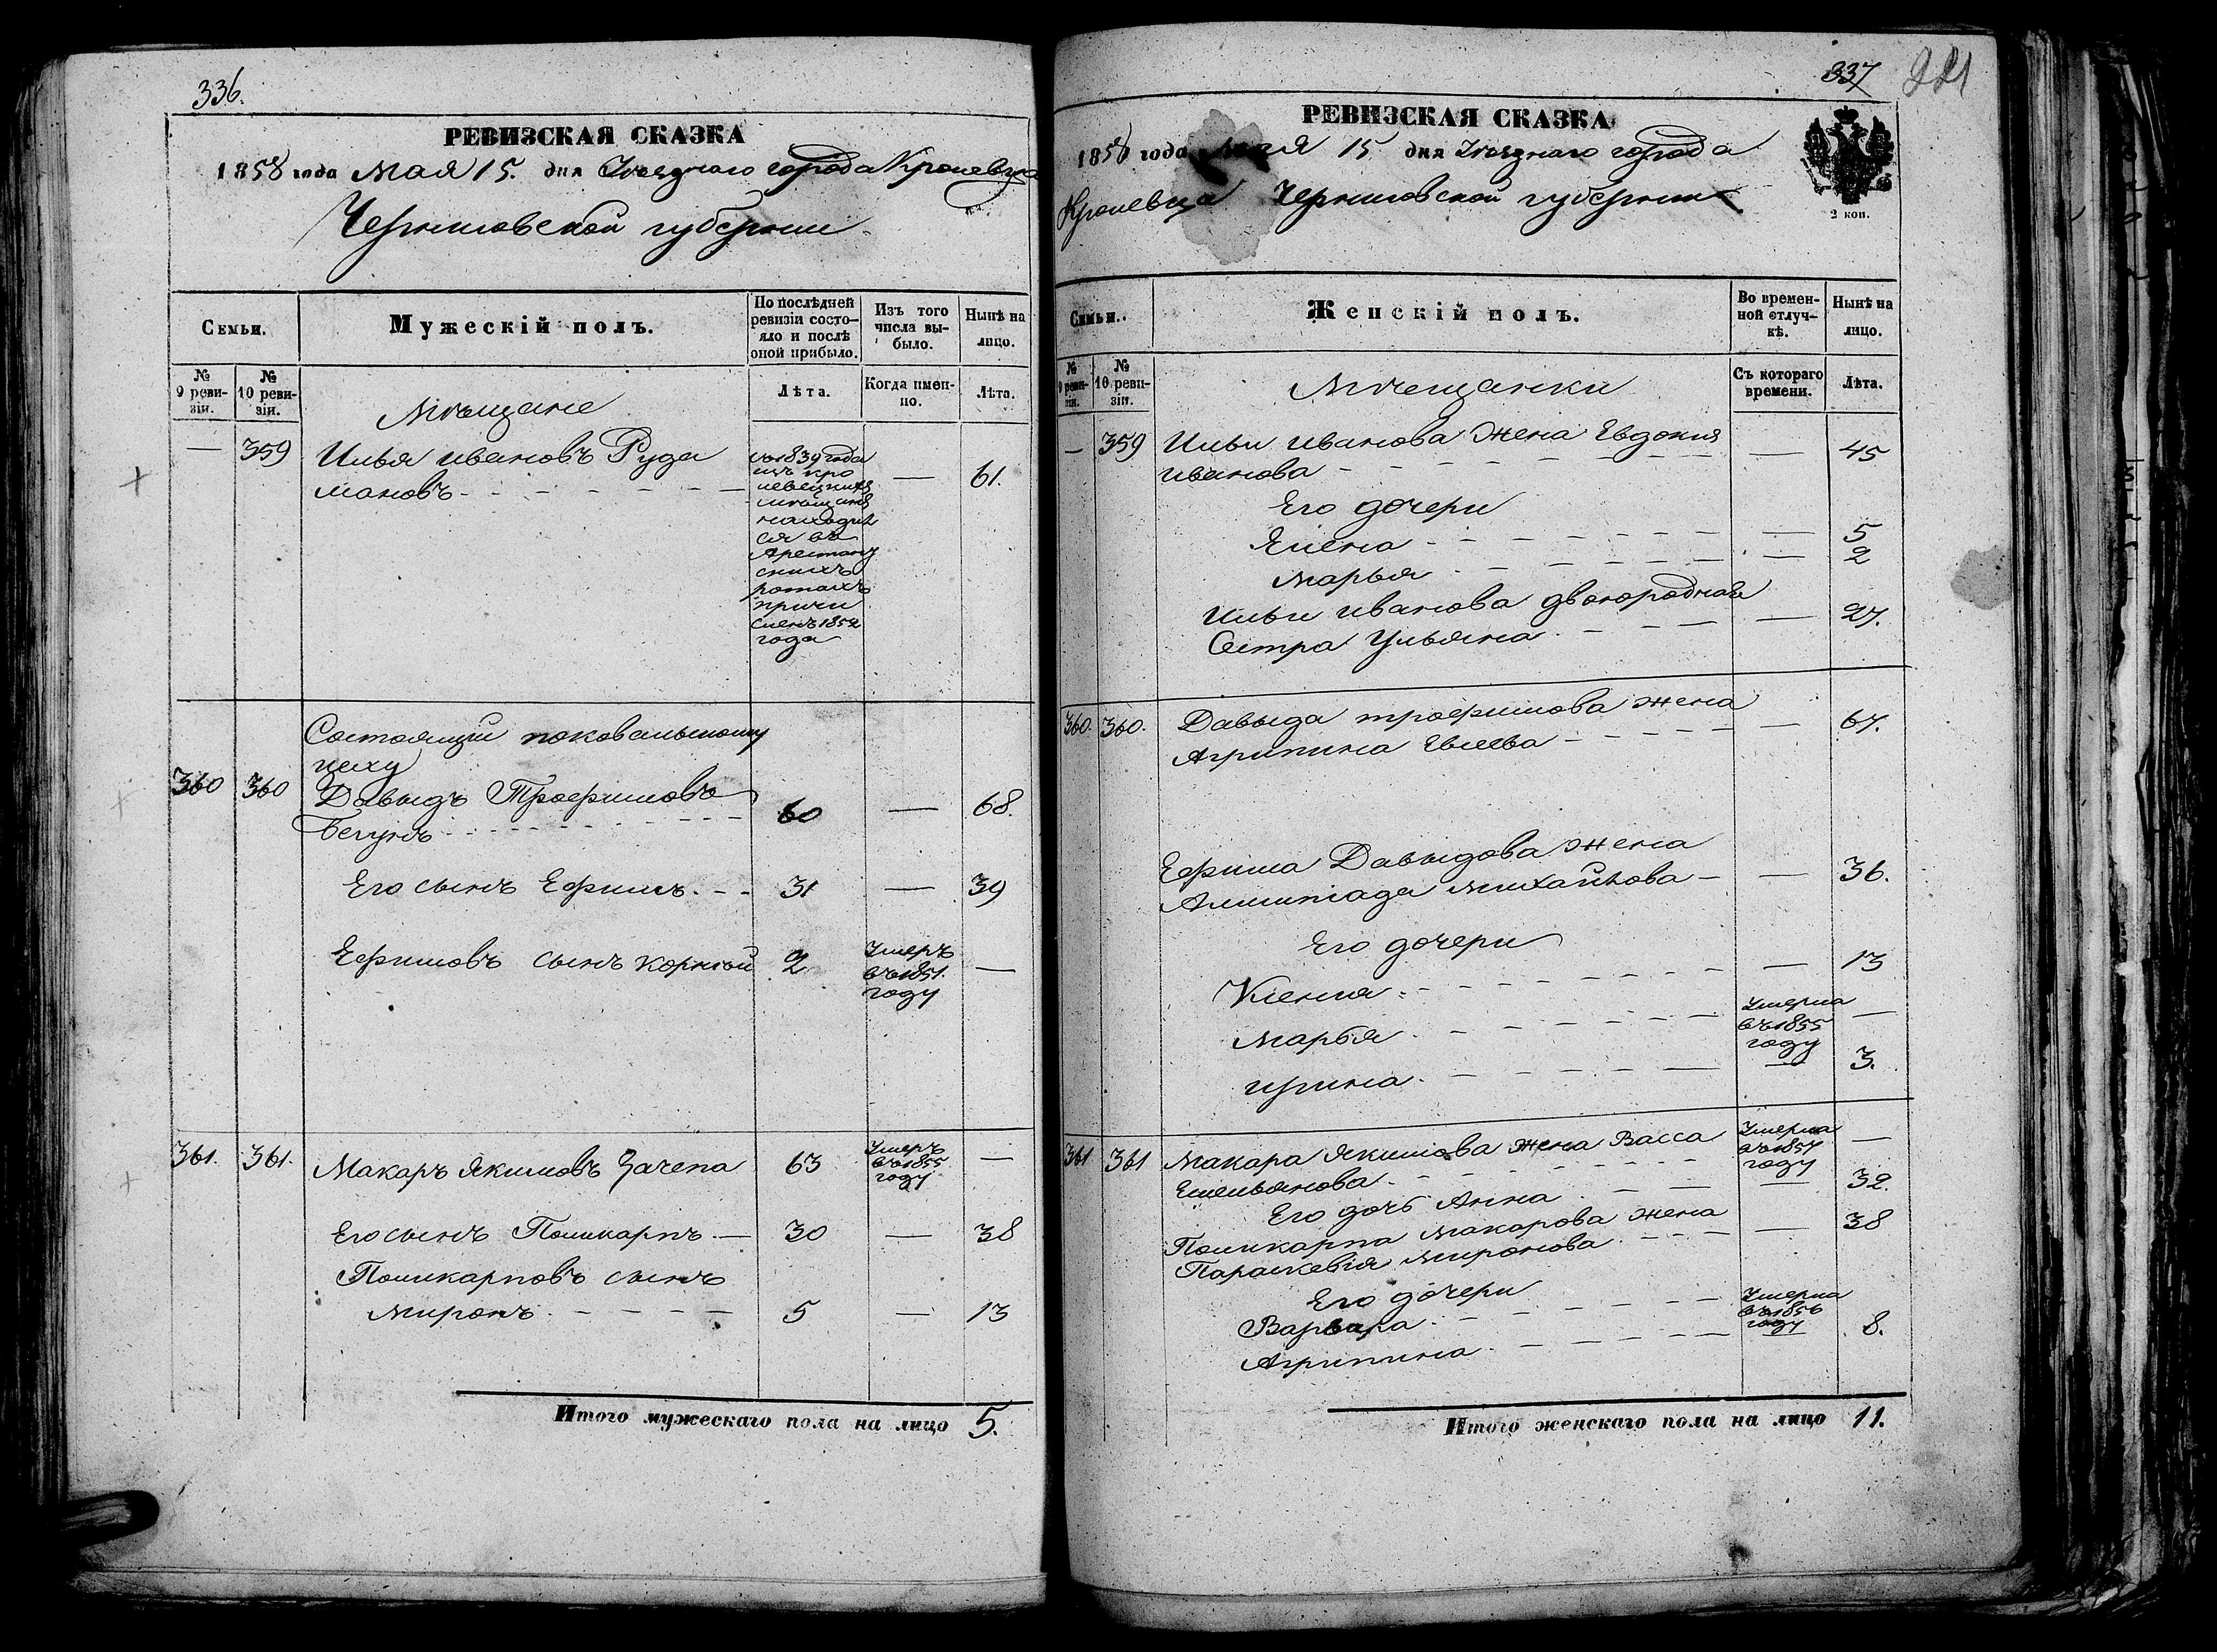 336.
РЕВИЗСКАЯ СКАЗКА
1858 года Мая 15. дня Уѣзднаго города Кролевца
Черниговской губерніи
Семьи.
Мужескій полъ.
По послѣдней ревизіи состо-
яло и послѣ оной прибыло.
Изъ того числа вы-
было.
Нынѣ на лицо.
№ 9 реви-
зіи.
№ 10 реви-
зіи.
Лѣта.
Когда имен-
но.
Лѣта.
Мѣщане
— 359 Илья Ивановъ Руда
мановъ — 61.
съ 1839 года
изъ кро
левецкихъ
мѣщанъ
находит
ся въ
Арестант
скихъ
ротахъ
причи
сленъ 1852
года
Состоящій по ковальскому
цеху
360 360 Давыдъ Трофимовъ
Бегунъ 60 — 68.
Его сынъ Ефимъ 31 — 39
Ефимовъ сынъ Корній 2 Умеръ
въ 1851.
году —
361. 361. Макаръ Якимовъ Зачепа 63 Умеръ
въ 1855
году —
Его сынъ Поликарпъ — 30 — 38
Поликарповъ сынъ
Миронъ 5 — 13
Итого мужескаго пола на лицо 5.
337
РЕВИЗСКАЯ СКАЗКА
1858 года Мая 15 дня Уѣзднаго города
Кролевца Черниговской губерніи
2 коп.
Семьи.
Женскій полъ.
Во времен-
ной отлуч-
кѣ.
Нынѣ на лицо.
№ 9 реви-
зіи.
№ 10 реви-
зіи.
Съ котораго времени.
Лѣта.
Мѣщанки
— 359 Ильи Иванова Жена Евдокия
Иванова — 45
Его дочери
Елена — 5
Марья — 2
Ильи Иванова двоюродная
Сестра Ульяна — 27.
360. 360. Давыда Трофимова жена
Агрипина Евсеева — 67.
Ефима Давыдова жена
Михайлова — 36.
Его дочери
— 13
Марья Умерла
въ 1855
году —
Ирина — 3.
361 361 Макара Якимова жена Васса
Емельянова Умерла
въ 1857
году —
Его дочь Анна — 32.
Поликарпа Макарова жена
Параскевія Миронова — 38
Его дочери
Варвара Умерла
въ 1856
году
Агрипина — 8.
Итого женскаго пола на лицо 11.